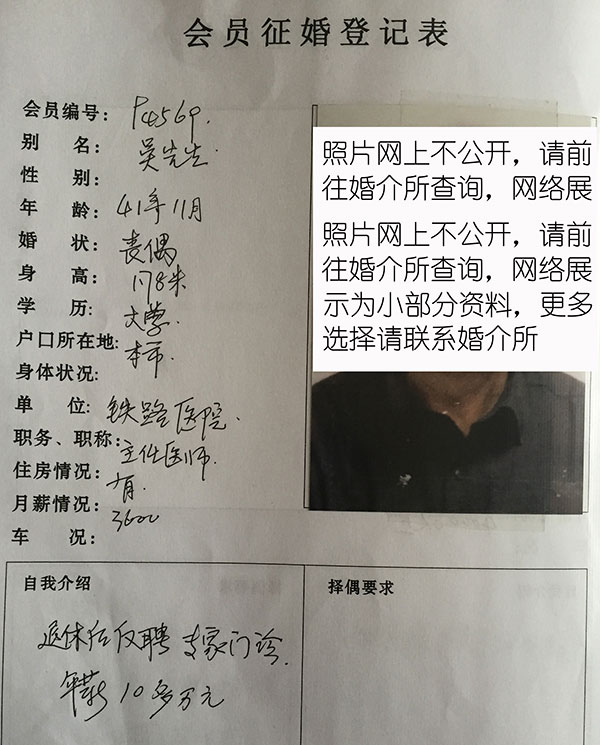 会员征婚登记表
会员编号: P4569.
别 名: 吴先生.
性 别:
年 龄: 41年11月
婚 状: 丧偶
身 高: 178米
学 历: 大学.
户口所在地: 本市.
身体状况:
单 位: 铁路医院.
职务、职称: 主任医师.
住房情况: 有.
月薪情况: 3600
车 况:
照片网上不公开，请前
往婚介所查询，网络展
照片网上不公开，请前
往婚介所查询，网络展
示为小部分资料，更多
选择请联系婚介所
自我介绍
退休后反聘 专家门诊.
年薪 10多万元
择偶要求